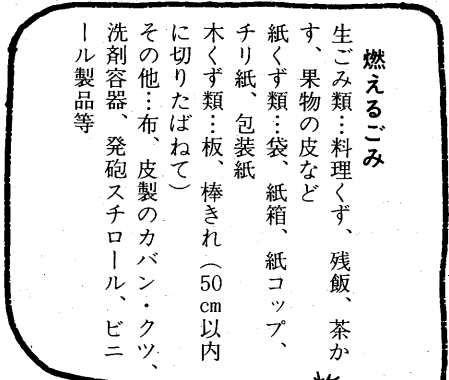 燃えるごみ
生ごみ類…料理くず、残飯、茶か
す、果物の皮など
紙くず類…袋、紙箱、紙コップ、
チリ紙、包装紙
木くず類…板、棒きれ(50cm以内
に切りたばねて)
その他…布、皮製のカバン・クツ、
洗剤容器、発砲スチロール、ビニ
ール製品等